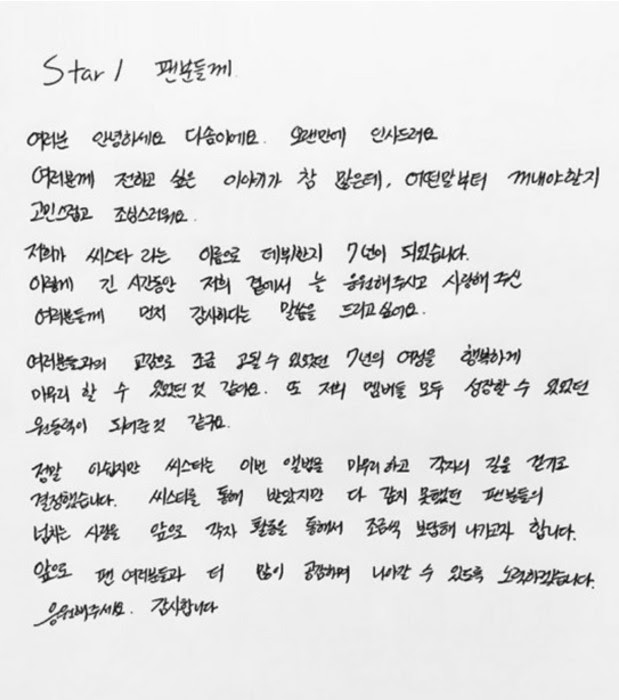 Star1 팬분들께.
여러분 안녕하세요 다솜이에요. 오랜만에 인사드려요
여러분께 전하고 싶은 이야기가 참 많은데, 어떤말부터 꺼내야할지
고민스럽고 조심스러워요.
저희가 씨스타 라는 이름으로 데뷔한지 7년이 되었습니다.
이렇게 긴 시간동안 저희 곁에서 늘 응원해주시고 사랑해주신
여러분들께 먼저 감사하다는 말씀을 드리고 싶어요.
여러분들과의 교감으로 조금 고될 수 있었던 7년의 여정을 행복하게
마무리 할 수 있었던 것 같아요. 또 저희 멤버들 모두 성장할 수 있었던
원동력이 되어준것 같구요.
정말 아쉽지만 씨스타는 이번 앨범을 마무리하고 각자의 길을 걷기로
결정했습니다. 씨스타를 통해 받았지만 다 갚지 못했던 팬분들의
넘치는 사랑을 앞으로 각자 활동을 통해서 조금씩 보답해 나가고자 합니다.
앞으로 팬 여러분들과 더 많이 공감하며 나아갈 수 있도록 노력하겠습니다.
응원해주세요. 감사합니다